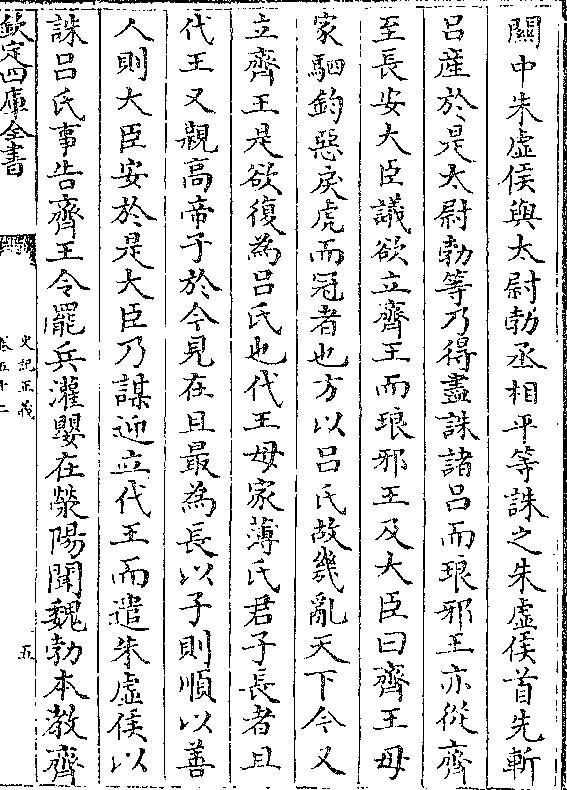 關中朱虛侯與太尉勃丞相平等誅之朱虛侯首先斬
呂産於是太尉勃等乃得盡誅諸呂而琅邪王亦從齊
至長安大臣議欲立齊王而琅邪王及大臣曰齊王母
家駟鈞惡戾虎而冠者也方以呂氏故幾亂天下今又
立齊王是欲復為呂氏也代王母家薄氏君子長者且
代王又親高帝子於今見在且最為長以子則順以善
人則大臣安於是大臣乃謀迎立代王而遣朱虛侯以
誅呂氏事告齊王令罷兵灌嬰在滎陽聞魏勃本教齊
欽定四庫全書
史記正義
卷五十二
五